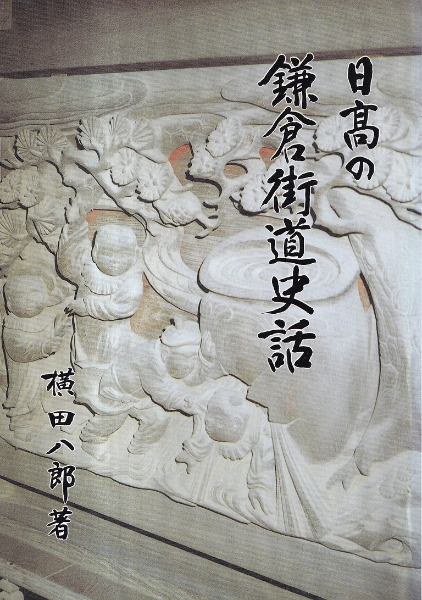 日高の
鎌倉街道史話
横田八郎著